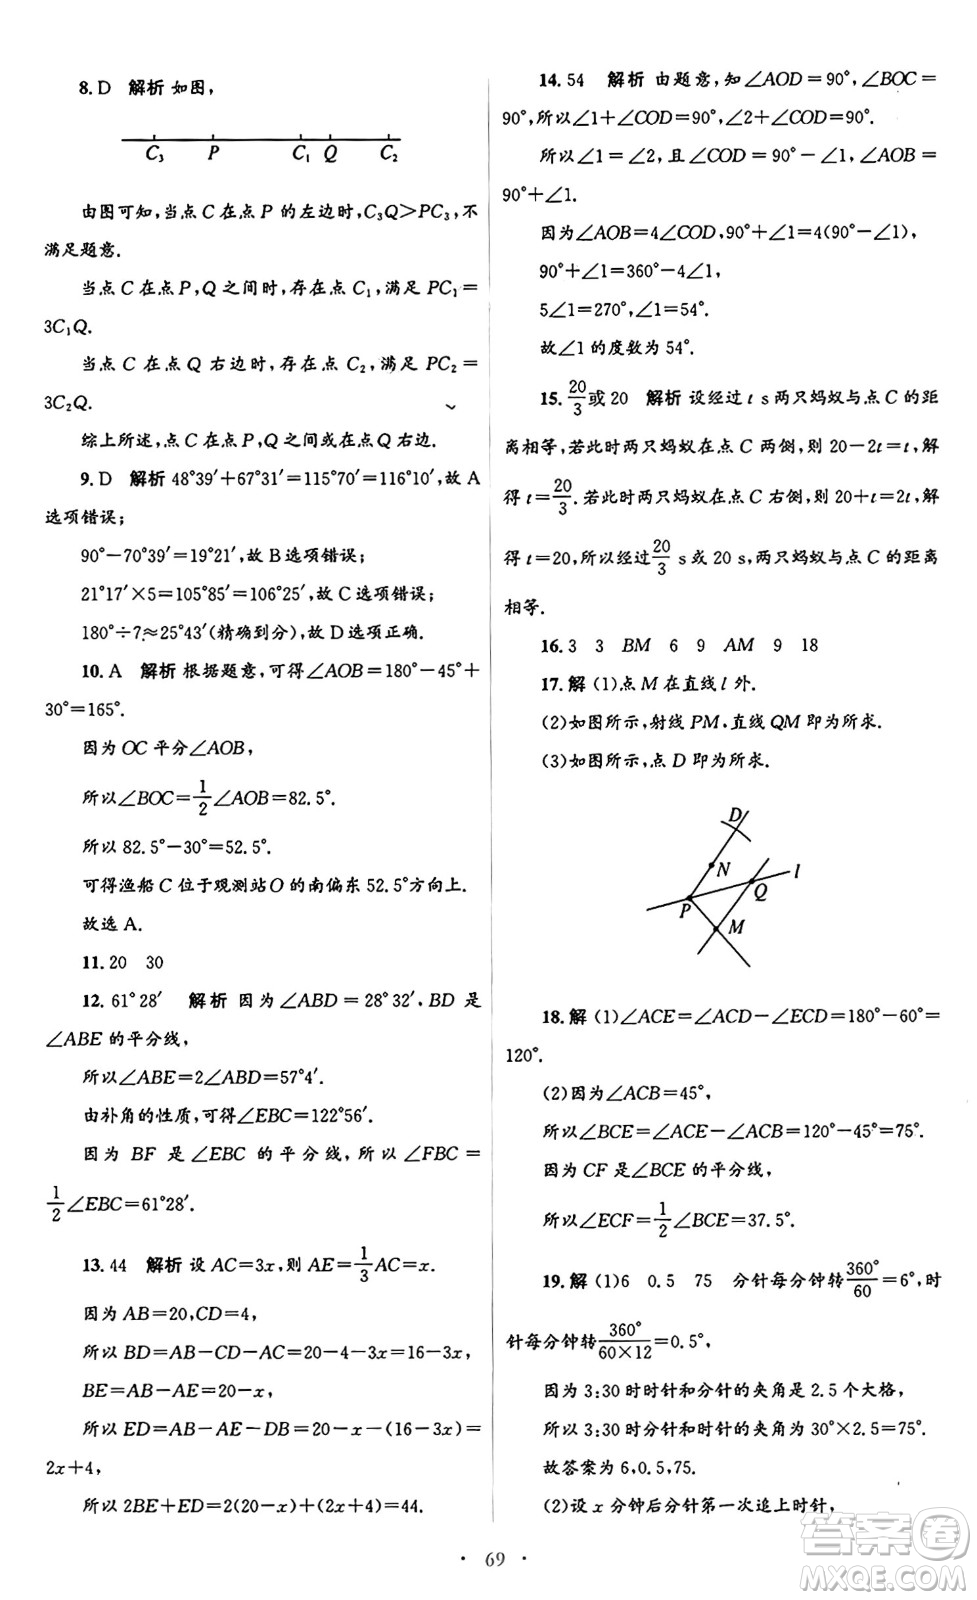 8. D　解析 如图，
C₃ P C₁ Q C₂
由图可知，当点 C 在点 P 的左边时，C₃Q＞PC₃，不
满足题意.
当点 C 在点 P，Q 之间时，存在点 C₁，满足 PC₁＝
3C₁Q.
当点 C 在点 Q 右边时，存在点 C₂，满足 PC₂＝
3C₂Q.
综上所述，点 C 在点 P，Q 之间或在点 Q 右边.
9. D　解析 48°39′＋67°31′＝115°70′＝116°10′，故 A
选项错误；
90°－70°39′＝19°21′，故 B 选项错误；
21°17′×5＝105°85′＝106°25′，故 C 选项错误；
180°÷7≈25°43′（精确到分），故 D 选项正确.
10. A　解析 根据题意，可得∠AOB＝180°－45°＋
30°＝165°.
因为 OC 平分∠AOB，
所以∠BOC＝1/2∠AOB＝82.5°.
所以 82.5°－30°＝52.5°.
可得渔船 C 位于观测站 O 的南偏东 52.5°方向上.
故选 A.
11. 20　30
12. 61°28′　解析 因为∠ABD＝28°32′，BD 是
∠ABE 的平分线，
所以∠ABE＝2∠ABD＝57°4′.
由补角的性质，可得∠EBC＝122°56′.
因为 BF 是∠EBC 的平分线，所以∠FBC＝
1/2∠EBC＝61°28′.
13. 44　解析 设 AC＝3x，则 AE＝1/3AC＝x.
因为 AB＝20，CD＝4，
所以 BD＝AB－CD－AC＝20－4－3x＝16－3x，
BE＝AB－AE＝20－x，
所以 ED＝AB－AE－DB＝20－x－(16－3x)＝
2x＋4，
所以 2BE＋ED＝2(20－x)＋(2x＋4)＝44.
14. 54　解析 由题意，知∠AOD＝90°，∠BOC＝
90°，所以∠1＋∠COD＝90°，∠2＋∠COD＝90°.
所以∠1＝∠2，且∠COD＝90°－∠1，∠AOB＝
90°＋∠1.
因为∠AOB＝4∠COD，90°＋∠1＝4(90°－∠1)，
90°＋∠1＝360°－4∠1，
5∠1＝270°，∠1＝54°.
故∠1 的度数为 54°.
15. 20/3或 20　解析 设经过 t s 两只蚂蚁与点 C 的距
离相等，若此时两只蚂蚁在点 C 两侧，则 20－2t＝t，解
得 t＝20/3. 若此时两只蚂蚁在点 C 右侧，则 20＋t＝2t，解
得 t＝20，所以经过20/3 s 或 20 s，两只蚂蚁与点 C 的距离
相等.
16. 3　3　BM　6　9　AM　9　18
17. 解 (1)点 M 在直线 l 外.
(2)如图所示，射线 PM，直线 QM 即为所求.
(3)如图所示，点 D 即为所求.
D
N
l
Q
P
M
18. 解 (1)∠ACE＝∠ACD－∠ECD＝180°－60°＝
120°.
(2)因为∠ACB＝45°，
所以∠BCE＝∠ACE－∠ACB＝120°－45°＝75°.
因为 CF 是∠BCE 的平分线，
所以∠ECF＝1/2∠BCE＝37.5°.
19. 解 (1)6　0.5　75　分针每分钟转360°/60＝6°，时
针每分钟转360°/(60×12)＝0.5°，
因为 3:30 时时针和分针的夹角是 2.5 个大格，
所以 3:30 时分针和时针的夹角为 30°×2.5＝75°.
故答案为 6，0.5，75.
(2)设 x 分钟后分针第一次追上时针，
· 69 ·
答案圈
MXQE.COM